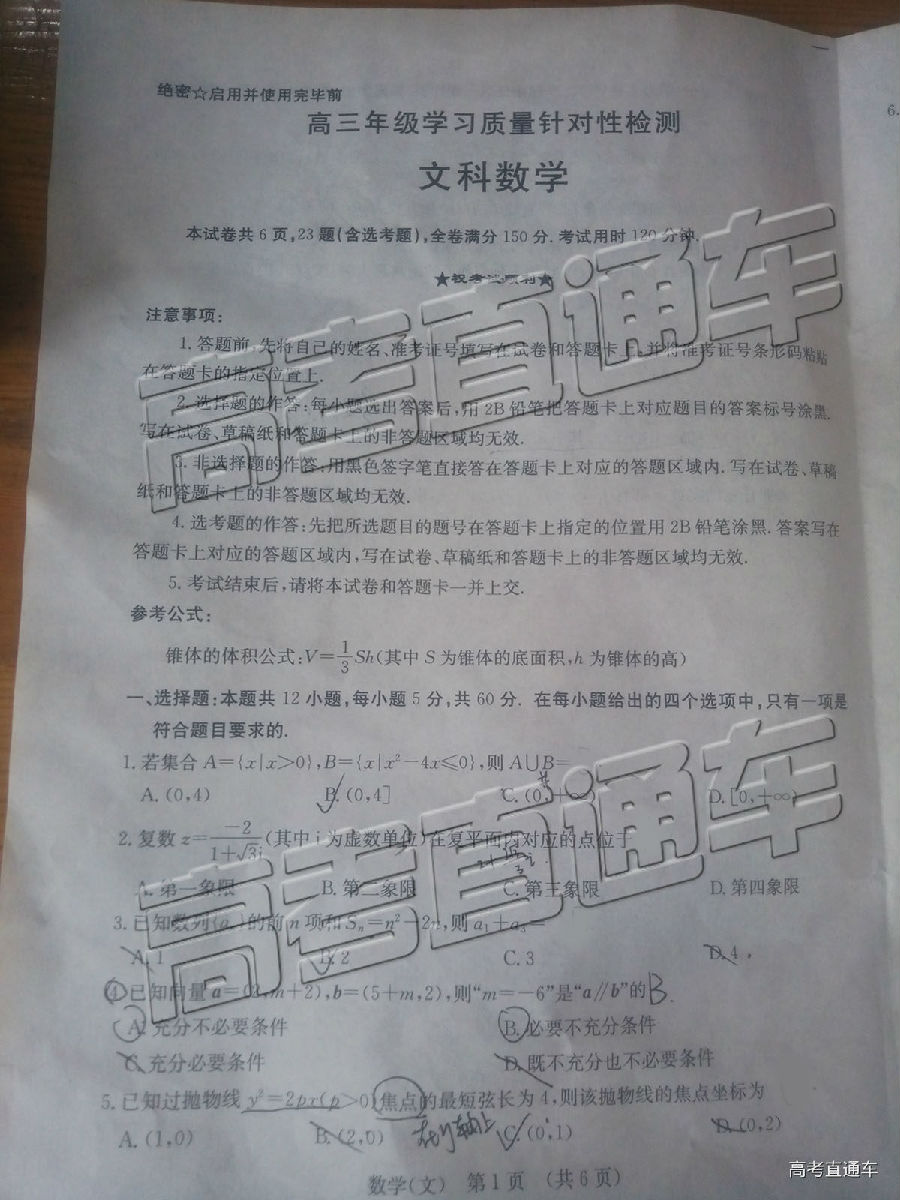 绝密☆启用并使用完毕前
高三年级学习质量针对性检测
文科数学
本试卷共6页,23题(含选考题),全卷满分150分.考试用时120分钟.
★祝考试顺利★
注意事项:
1.答题前,先将自己的姓名、准考证号填写在试卷和答题卡上,并将准考证号条形码粘贴
在答题卡的指定位置上.
2.选择题的作答:每小题选出答案后,用2B铅笔把答题卡上对应题目的答案标号涂黑.
写在试卷、草稿纸和答题卡上的非答题区域均无效.
3.非选择题的作答:用黑色签字笔直接答在答题卡上对应的答题区域内.写在试卷、草稿
纸和答题卡上的非答题区域均无效.
4.选考题的作答:先把所选题目的题号在答题卡上指定的位置用2B铅笔涂黑.答案写在
答题卡上对应的答题区域内,写在试卷、草稿纸和答题卡上的非答题区域均无效.
5.考试结束后,请将本试卷和答题卡一并上交.
参考公式:
锥体的体积公式:V=1/3Sh(其中S为锥体的底面积,h为锥体的高)
一、选择题:本题共12小题,每小题5分,共60分. 在每小题给出的四个选项中,只有一项是
符合题目要求的.
1.若集合A={x|x>0},B={x|x²-4x≤0},则A∪B=
A.(0,4) B.(0,4] C.(0,+∞) D.[0,+∞)
2.复数z=-2/(1+√3i)(其中i为虚数单位)在复平面内对应的点位于
A.第一象限 B.第二象限 C.第三象限 D.第四象限
3.已知数列{aₙ}的前n项和Sₙ=n²-2n,则a₁+a₃=
A.1 B.2 C.3 D.4
4.已知向量a=(2,m+2),b=(5+m,2),则“m=-6”是“a∥b”的 B
A.充分不必要条件 B.必要不充分条件
C.充分必要条件 D.既不充分也不必要条件
5.已知过抛物线y²=2px(p>0)焦点的最短弦长为4,则该抛物线的焦点坐标为
A.(1,0) B.(2,0) C.(0,1) D.(0,2)
数学(文) 第1页 (共6页)
6.
高考直通车
高考直通车
高考直通车